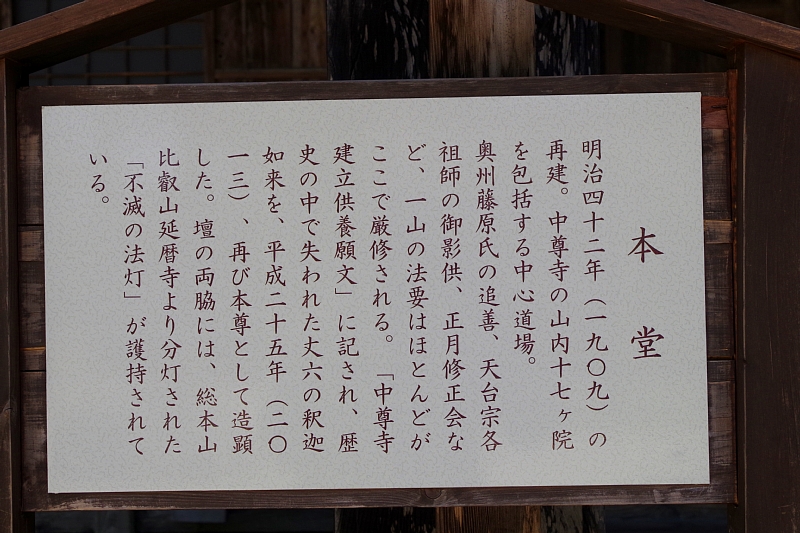 本堂
明治四十二年（一九〇九）の
再建。中尊寺の山内十七ヶ院
を包括する中心道場。
奥州藤原氏の追善、天台宗各
祖師の御影供、正月修正会な
ど、一山の法要はほとんどが
ここで厳修される。「中尊寺
建立供養願文」に記され、歴
史の中で失われた丈六の釈迦
如来を、平成二十五年（二〇
一三）、再び本尊として造顕
した。壇の両脇には、総本山
比叡山延暦寺より分灯された
「不滅の法灯」が護持されて
いる。